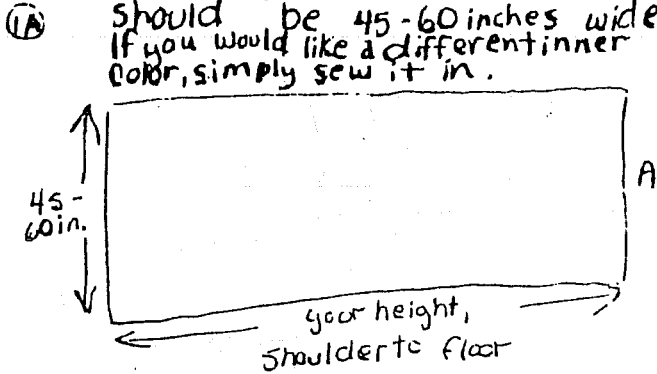 1A should be 45-60 inches wide
If you would like a different inner
color, simply sew it in.
A
45-
60in.
your height,
shoulder to floor